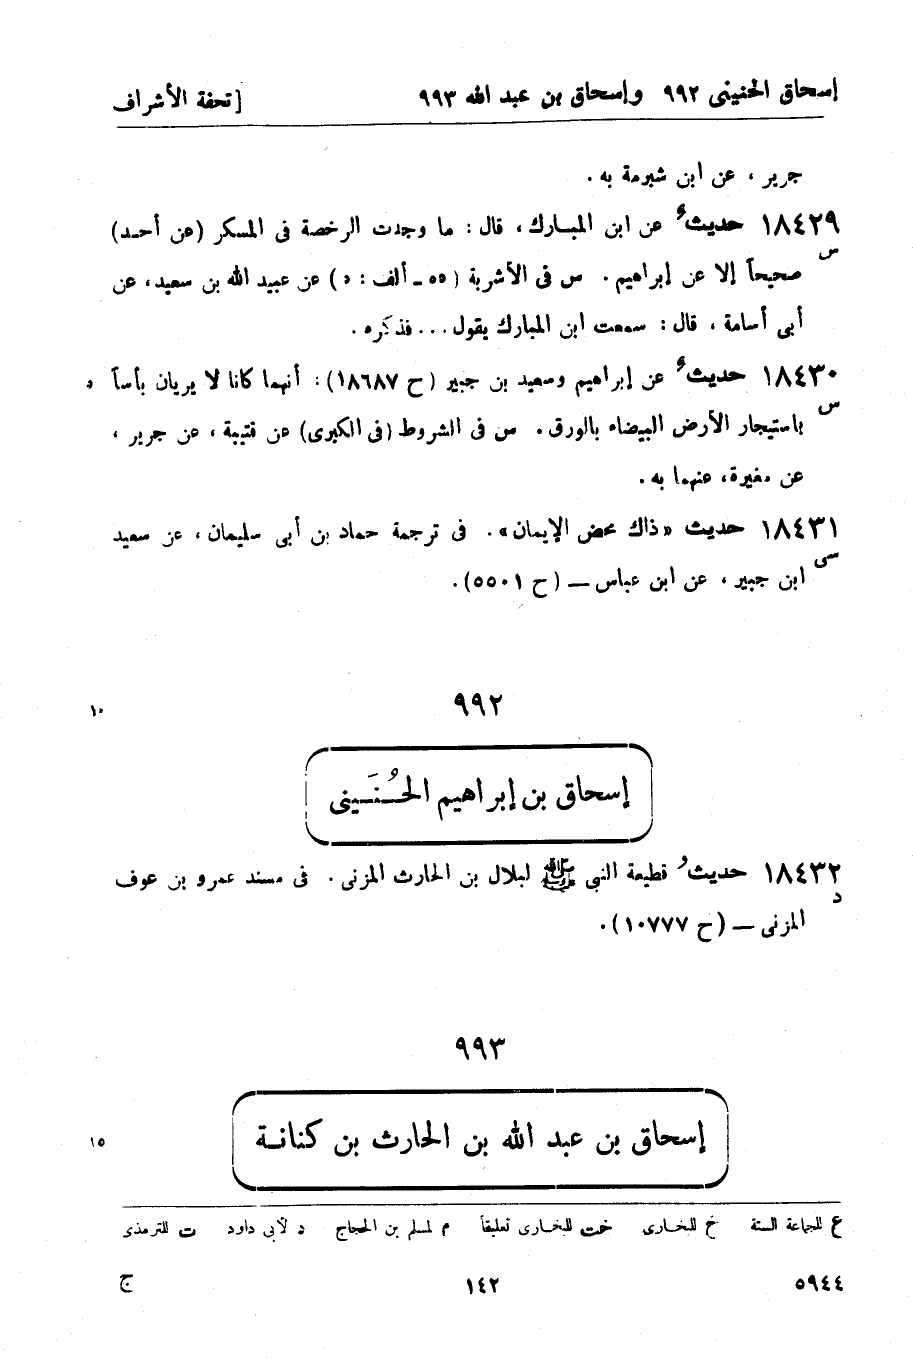 إسحاق الحنينى ٩٩٢ وإسحاق بن عبد الله ٩٩٣ [تحفة الأشراف
جرير ، عن ابن شبرمة به .
١٨٤٢٩ حديث عن ابن المبارك ، قال : ما وجدت الرخصة فى المسكر (عن أحـد)
س
صحيحاً إلا عن إبراهيم . س فى الأشربة (٥٥ ـ ألف : ٥) عن عبيد الله بن سعيد، عن
أبى أسامة ، قال : سمعت ابن المبارك يقول ... فذكره .
١٨٤٣٠ حديث عن إبراهيم وسعيد بن جبير (ح ١٨٦٨٧) : أنهما كانا لا يريان بأساً ٥
س
باستيجار الأرض البيضاء بالورق . س فى الشروط (فى الكبرى) عن قتيبة ، عن جرير ،
عن مغيرة، عنهما به .
١٨٤٣١ حديث «ذاك محض الإيمان» . فى ترجمة حماد بن أبى سليمان ، عن سعيد
سى
ابن جبير ، عن ابن عباس — (ح ٥٥٠١) .
٩٩٢
١٠
إسحاق بن إبراهيم الحُـنَـينى
١٨٤٣٢ حديثُ قطيعة النبى ﷺ لبلال بن الحارث المزنى . فى مسند عمرو بن عوف
د
المزنى — (ح ١٠٧٧٧) .
٩٩٣
إسحاق بن عبد الله بن الحارث بن كنانـة
١٥
ع للجماعة الستة خ للبخارى خت للبخارى تعليقاً م لمسلم بن الحجاج د لأبى داود ت للترمذى
٥٩٤٤ ١٤٢ ج